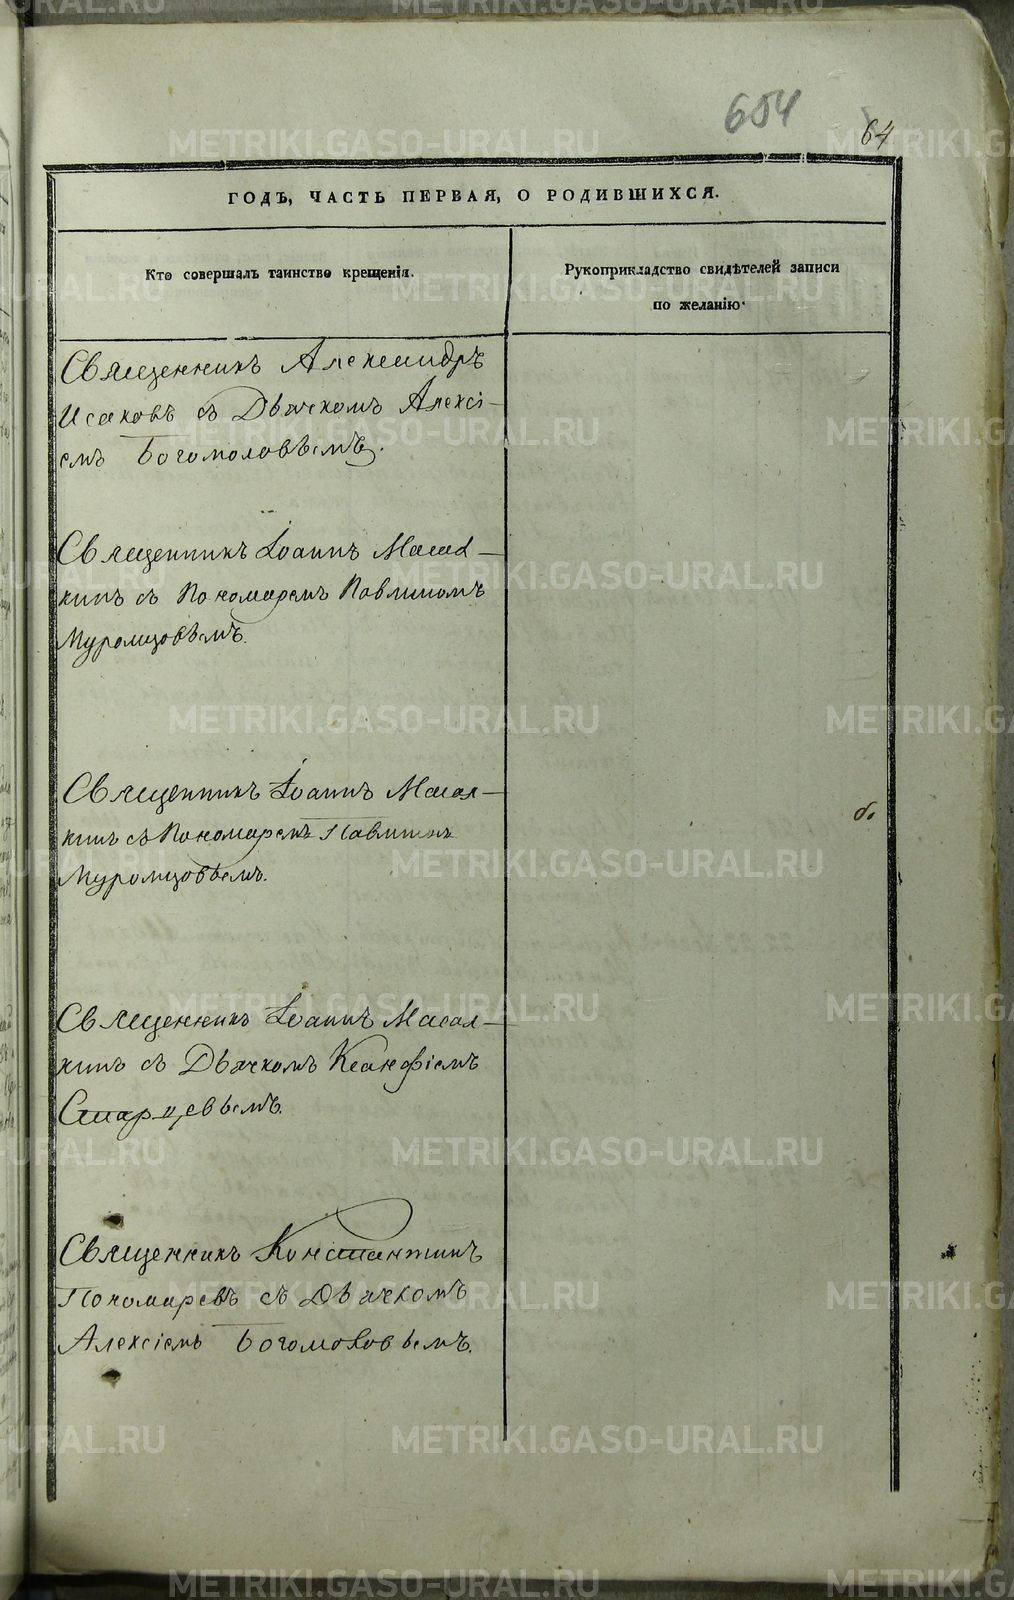 654
64
ГОДЪ, ЧАСТЬ ПЕРВАЯ, О РОДИВШИХСЯ.
Кто совершалъ таинство крещенія.
Рукоприкладство свидѣтелей записи
по желанію·
Священникъ Александръ
Исаковъ съ Дьячкомъ Алексі-
емъ Богомоловьемъ.
Священникъ Іоаннъ Масал-
кинъ съ Пономаремъ Павлиномъ
Муромцовьемъ.
Священникъ Іоаннъ Масал-
кинъ съ Пономаремъ Павлиномъ
Муромцовьемъ.
Священникъ Іоаннъ Масал-
кинъ съ Дьячкомъ Ксанфіемъ
Старцевьемъ.
Священникъ Константинъ
Пономаревъ съ Дьячкомъ
Алексіемъ Богомоловьемъ.
METRIKI.GASO-URAL.RU